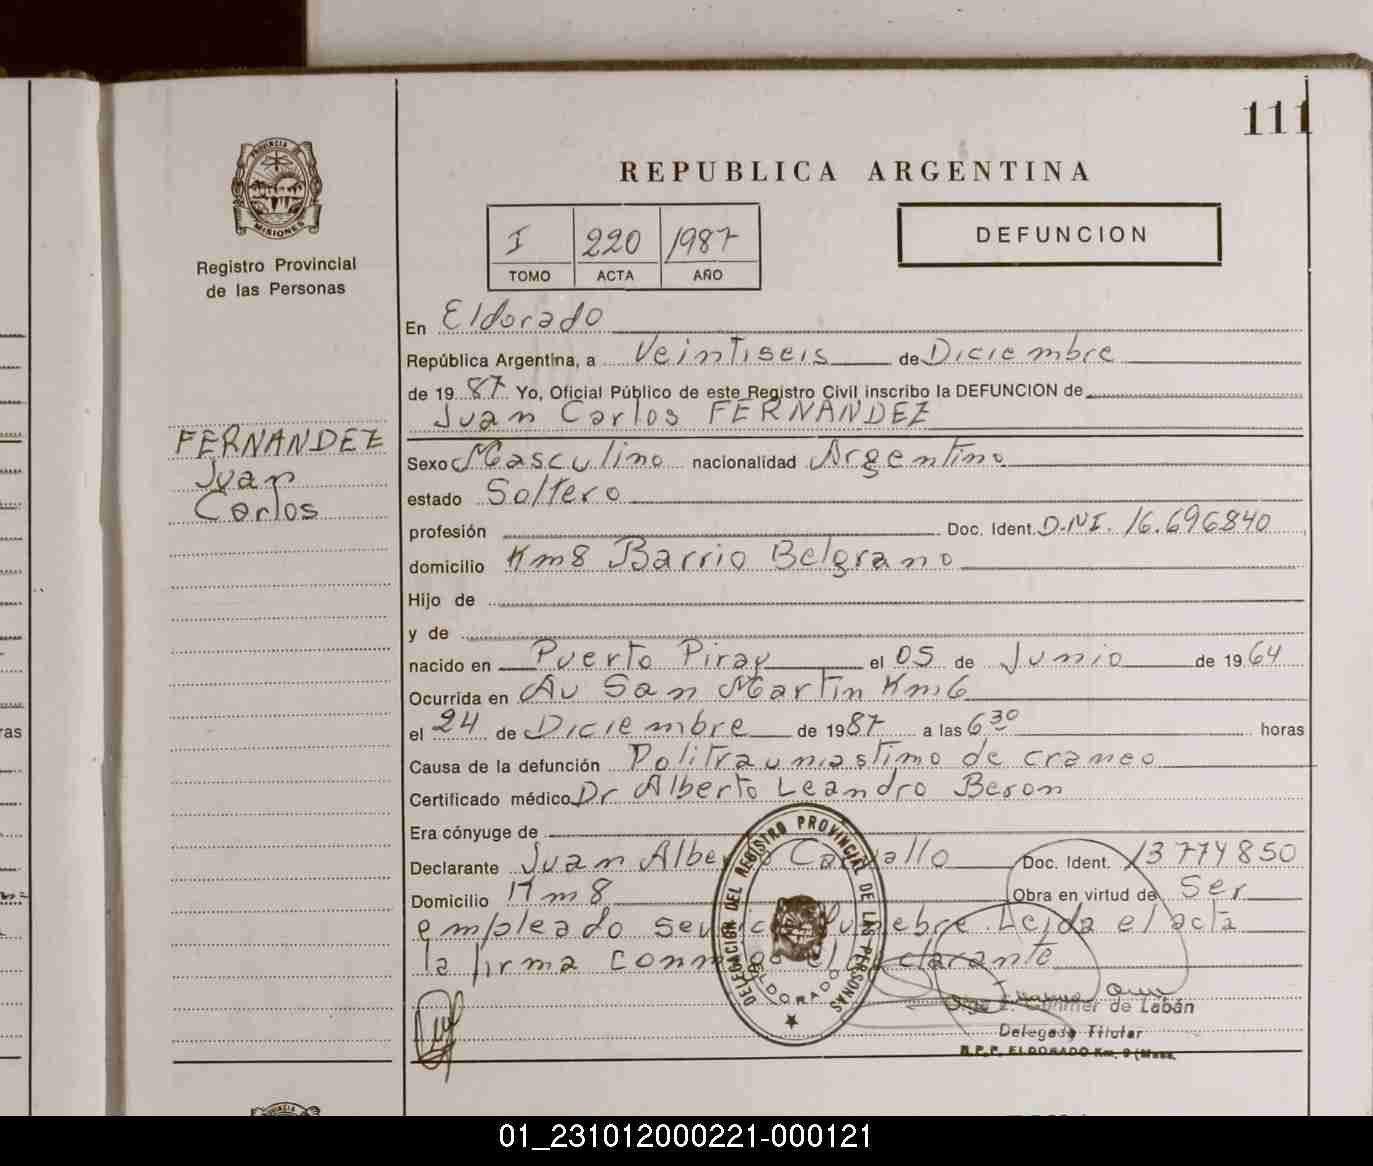 111
REPUBLICA ARGENTINA
PROVINCIA
MISIONES
Registro Provincial
de las Personas
I 220 1987
TOMO ACTA AÑO
DEFUNCION
En Eldorado
República Argentina, a Veintiseis de Diciembre
de 1987 Yo, Oficial Público de este Registro Civil inscribo la DEFUNCION de
Juan Carlos FERNANDEZ
FERNANDEZ
Juan
Carlos
Sexo Masculino nacionalidad Argentino
estado Soltero
profesión Doc. Ident. D.N.I. 16.696840
domicilio Km 8 Barrio Belgrano
Hijo de
y de
nacido en Puerto Piray el 05 de Junio de 1964
Ocurrida en Av San Martin Km 6
el 24 de Diciembre de 1987 a las 6 30 horas
Causa de la defunción Politraumastimo de craneo
Certificado médico Dr Alberto Leandro Beron
Era cónyuge de
Declarante Juan Alberto Carvallo Doc. Ident. 13774850
Domicilio Km 8 Obra en virtud de Ser
empleado funebre. Leida el acta
la firma conmigo el declarante
DELEGACION DEL REGISTRO PROVINCIAL DE LAS PERSONAS
ELDORADO
de Labán
Delegada Titular
R.P.P. ELDORADO Km. 9 (Mnes.
ras
01_231012000221-000121